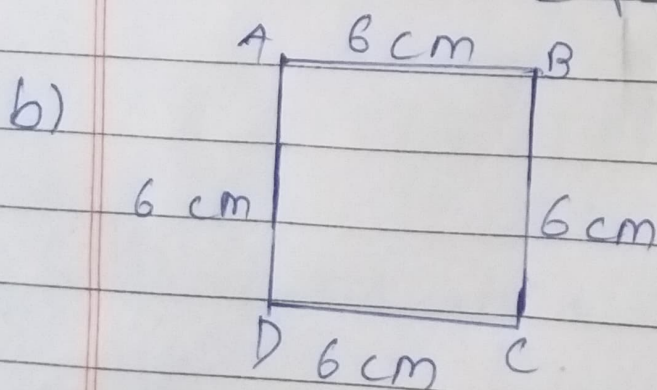 A 6 cm B
b)
6 cm 6 cm
D 6 cm C